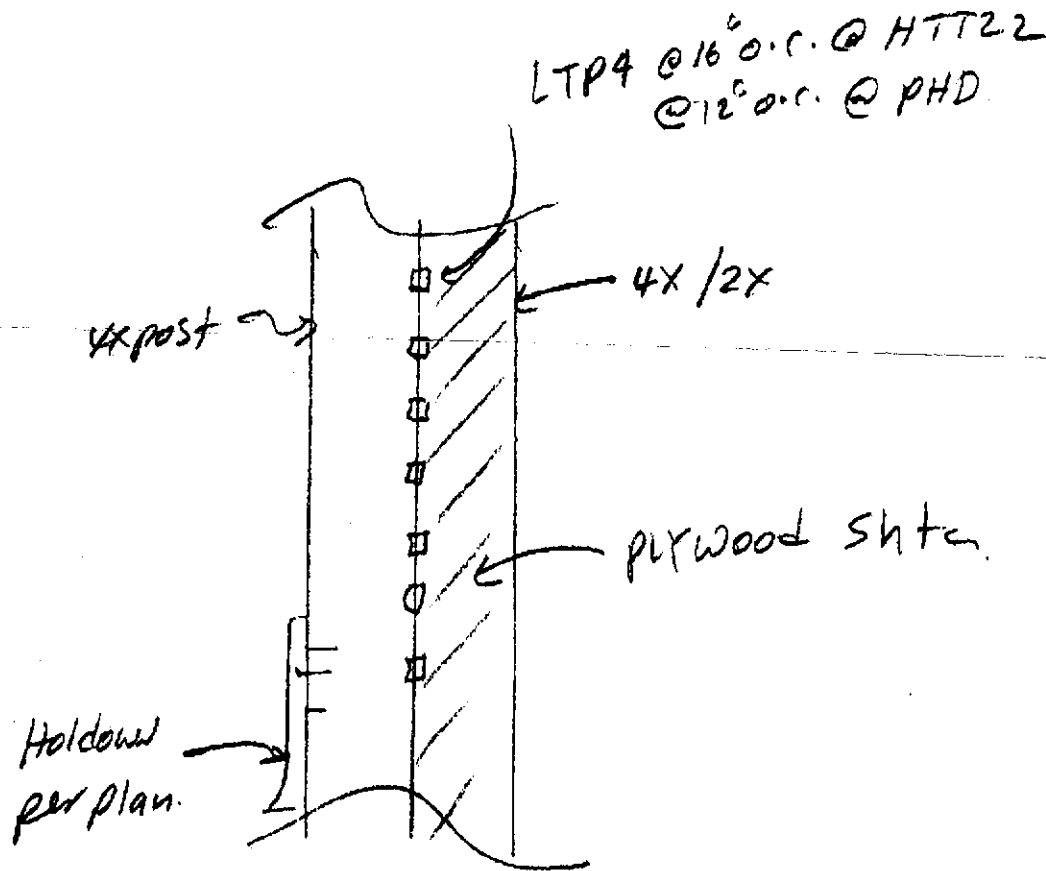 LTP4 @ 16" o.c. @ HTT22
@ 12" o.c. @ PHD
4X /2X
4x post
plywood Shtg.
Holdown
per plan.